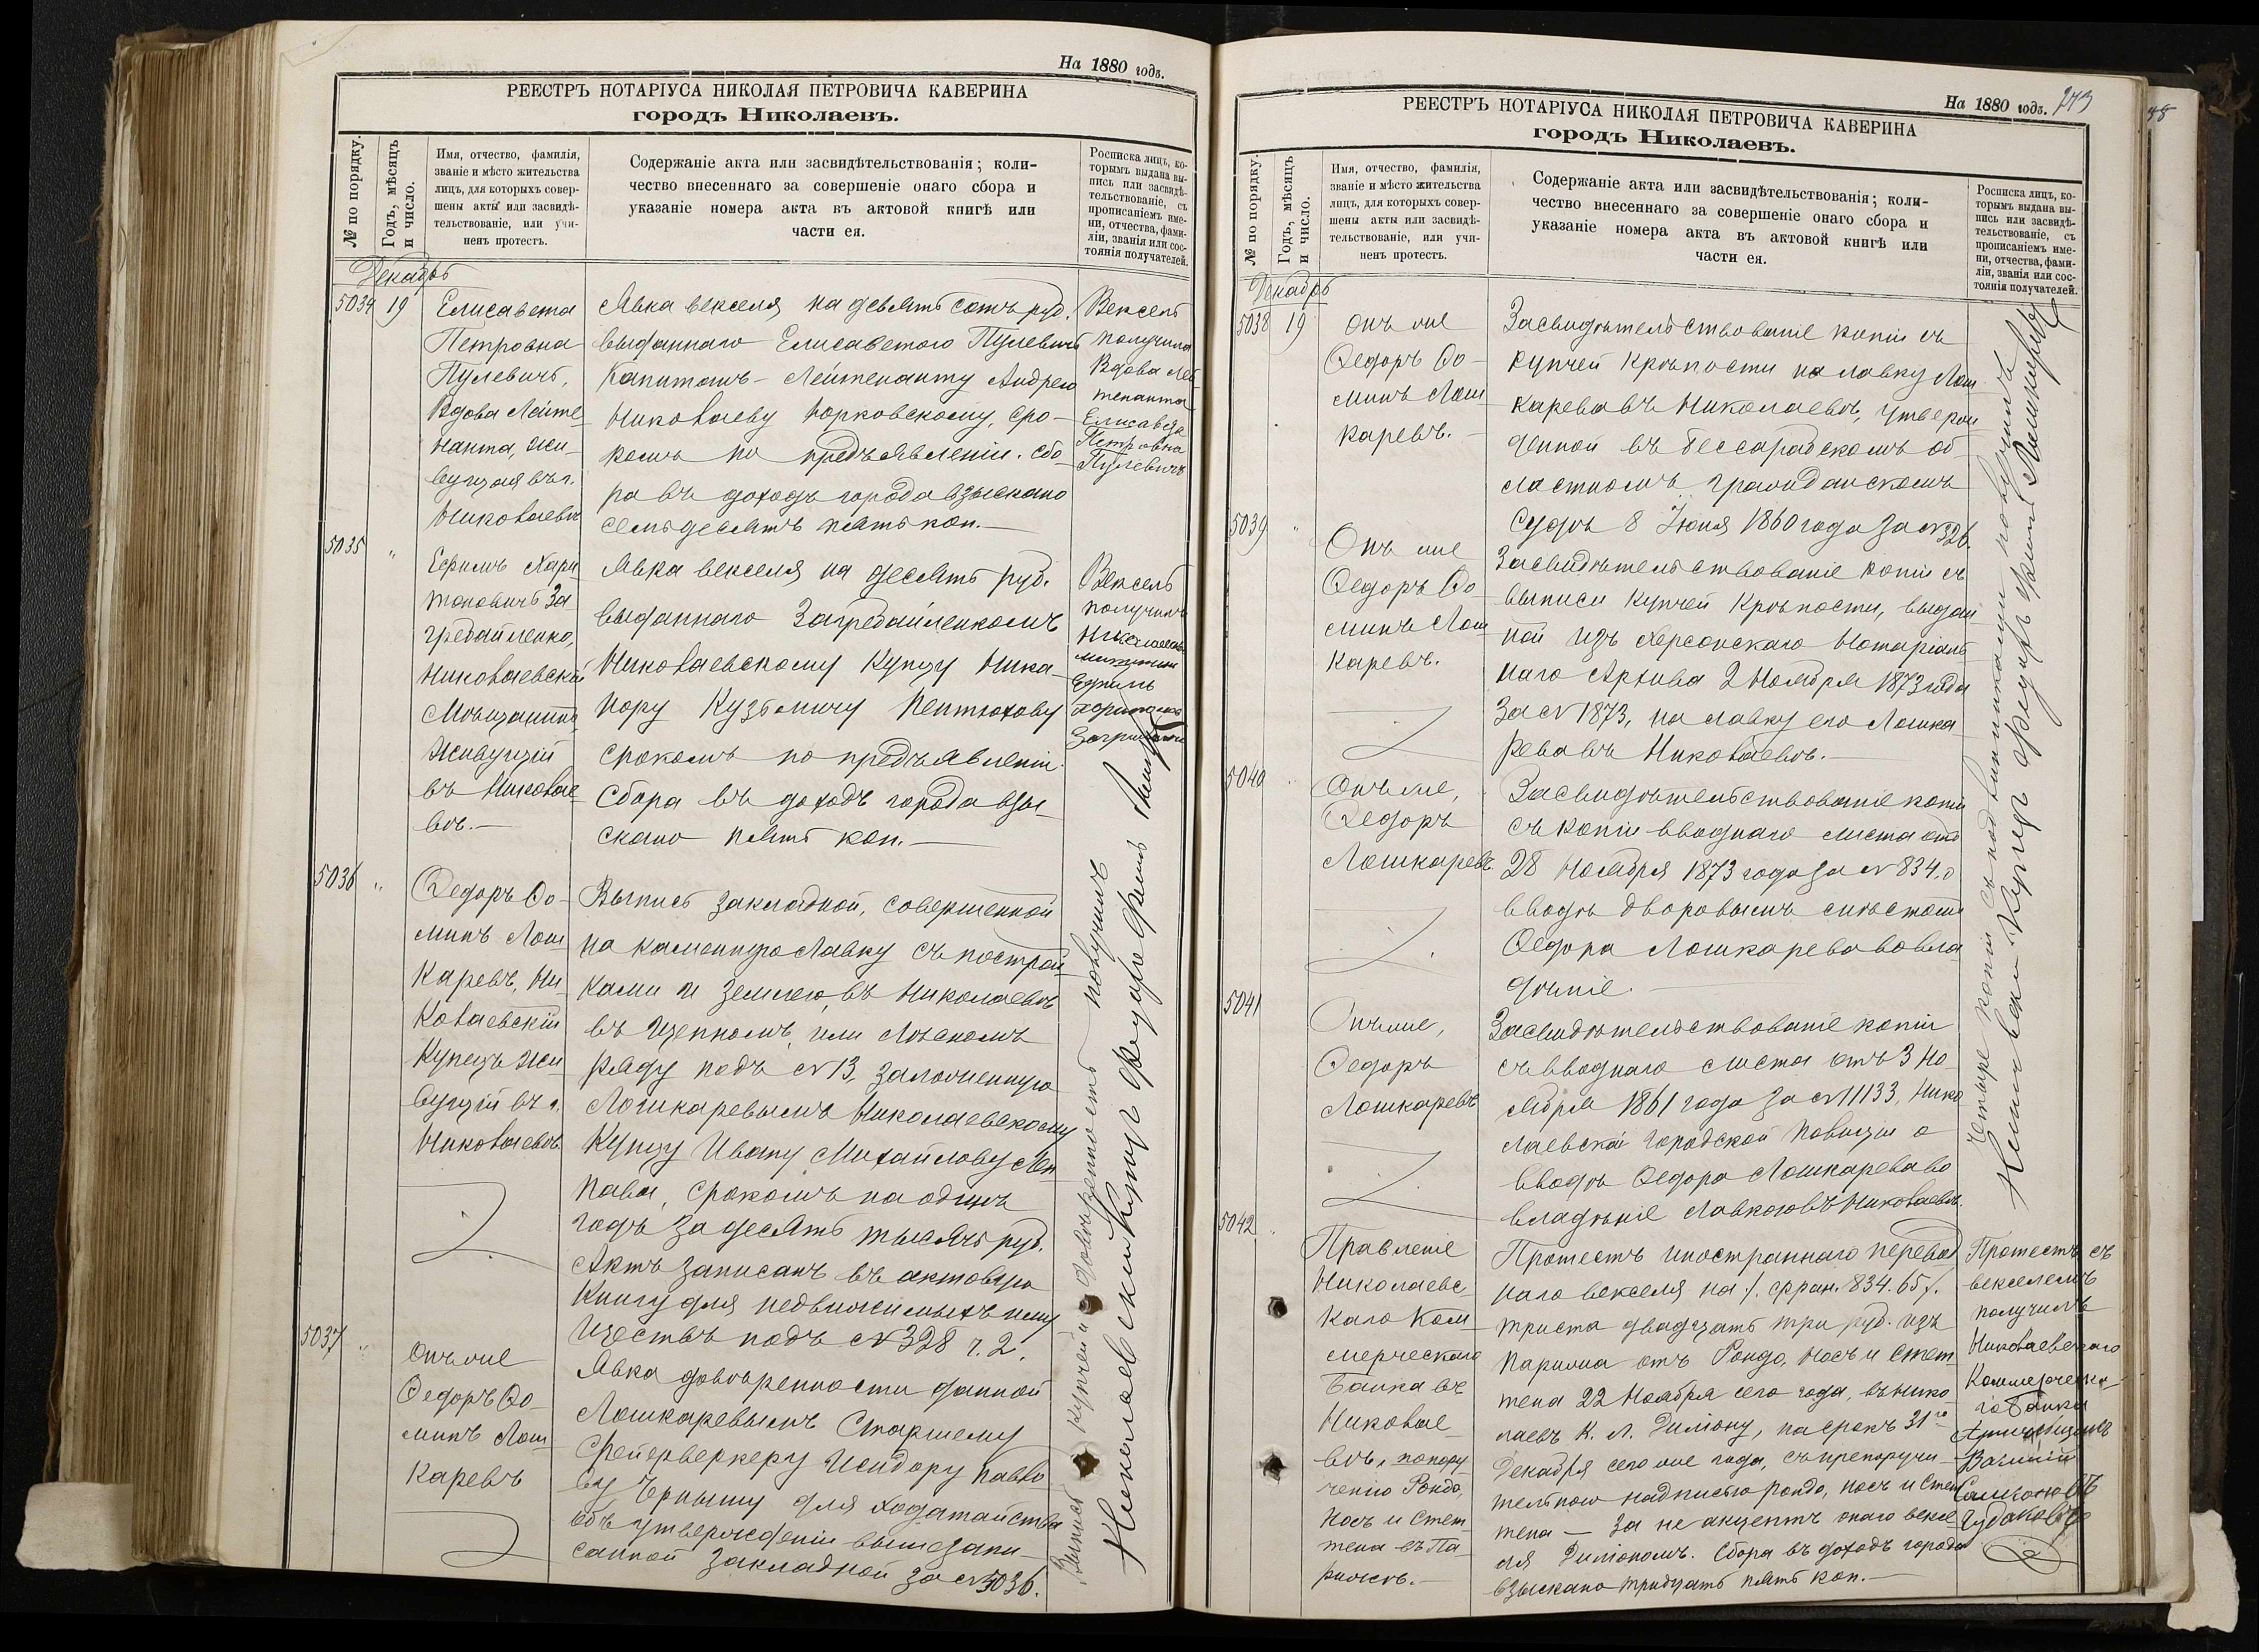 На 1880 годъ.
РЕЕСТРЪ НОТАРІУСА НИКОЛАЯ ПЕТРОВИЧА КАВЕРИНА
городъ Николаевъ.
№ по порядку.
Годъ, мѣсяцъ
и число.
Имя, отчество, фамилія,
званіе и мѣсто жительства
лицъ, для которыхъ совер-
шены акты или засвидѣ-
тельствованіе, или учи-
ненъ протестъ.
Содержаніе акта или засвидѣтельствованія; коли-
чество внесеннаго за совершеніе онаго сбора и
указаніе номера акта въ актовой книгѣ или
части ея.
Росписка лицъ, ко-
торымъ выдана вы-
пись или засвидѣ-
тельствованіе, съ
прописаніемъ име-
ни, отчества, фами-
ліи, званія или сос-
тоянія получателей.
Декабрь
5034 19
Елисавета
Петровна
Пулевичъ,
Вдова Лейте
нанта, жи-
вущая въ г.
Николаевѣ
Явка векселя на девять сотъ руб.
выданнаго Елисаветою Пулевичъ
Капитанъ-Лейтенанту Андрею
Николаеву Юрковскому, сро-
комъ по предъявленіи. Сбо-
ра въ доходъ города взыскано
семьдесятъ пять коп.—
Вексель
получила
Вдова Лей
тенанта
Елисавета
Петровна
Пулевичъ
5035 "
Ефимъ Хари
тоновичъ За
гребайленко,
Николаевскій
Мѣщанинъ
живущій
въ Николае
вѣ.—
Явка векселя на десять руб.
выданнаго Загребайленкомъ
Николаевскому Купцу Ника-
нору Кузьмичу Пентюхову
срокомъ по предъявленіи.
Сбора въ доходъ города взы-
скано пять коп.—
Вексель
получилъ
Ефимъ
5036 "
Ѳедоръ Ѳо-
минъ Лош
каревъ, Ни-
колаевскій
Купецъ жи
вущій въ г.
Николаевѣ
Выпись закладной, совершенной
на каменную лавку съ построй
ками и землею, въ Николаевѣ
въ Щепномъ, или Лѣсномъ
ряду подъ № 13, заложенную
Лошкаревымъ Николаевскому
Купцу Ивану Михайлову
срокомъ на одинъ
годъ за десять тысячъ руб.
Актъ записанъ въ актовую
Книгу для недвижимыхъ иму
ществъ подъ № 328 ч. 2.
5037 "
Онъ же
Ѳедоръ Ѳо-
минъ Лош
каревъ
Явка довѣренности данной
Лошкаревымъ Старшему
Фейерверкеру Исидору Павло
ву Черныму для ходатайства
объ утвержденіи вышезапи-
санной закладной за № 5036.
Николаевскій Купецъ Федоръ Фоминъ
На 1880 годъ. 273
РЕЕСТРЪ НОТАРІУСА НИКОЛАЯ ПЕТРОВИЧА КАВЕРИНА
городъ Николаевъ.
№ по порядку.
Годъ, мѣсяцъ
и число.
Имя, отчество, фамилія,
званіе и мѣсто жительства
лицъ, для которыхъ совер-
шены акты или засвидѣ-
тельствованіе, или учи-
ненъ протестъ.
Содержаніе акта или засвидѣтельствованія; коли-
чество внесеннаго за совершеніе онаго сбора и
указаніе номера акта въ актовой книгѣ или
части ея.
Росписка лицъ, ко-
торымъ выдана вы-
пись или засвидѣ-
тельствованіе, съ
прописаніемъ име-
ни, отчества, фами-
ліи, званія или сос-
тоянія получателей.
Декабрь
5038 19
Онъ же
Ѳедоръ Ѳо-
минъ Лош
каревъ.
Засвидѣтельствованіе копіи съ
купчей крѣпости на лавку Лош
карева въ Николаевѣ, утверж
денной въ Бессарабскомъ об-
ластномъ гражданскомъ
судѣ 8 Іюня 1860 года за № 326.
5039 "
Онъ же
Ѳедоръ Ѳо
минъ Лош
каревъ.
Засвидѣтельствованіе копіи съ
выписи купчей крѣпости, выдан
ной изъ Херсонскаго Нотаріаль
наго Архива 2 Ноября 1873 года
за № 1873, на лавку его Лошка
рева въ Николаевѣ.—
5040
Онъ же,
Ѳедоръ
Лошкаревъ
Засвидѣтельствованіе копіи
съ копіи вводнаго листа отъ
28 Ноября 1873 года за № 834, о
вводѣ дворовымъ мѣстомъ
Ѳедора Лошкарева во вла
дѣніе.
5041
Онъ же,
Ѳедоръ
Лошкаревъ
Засвидѣтельствованіе копіи
съ вводнаго листа отъ 3 Но-
ября 1861 года за № 11133, Нико
лаевской городской полиціи о
вводѣ Ѳедора Лошкарева во
владѣніе лавкою въ Николаевѣ.
Четыре копіи съ подлинниками получилъ
Николаевскій Купецъ Федоръ Фоминъ Лошкаревъ
5042
Правленіе
Николаевс
каго Ком-
мерческаго
Банка въ
Николае
вѣ, по пору
ченію Рондо,
Носъ и Стет-
тена въ Па-
рижѣ.—
Протестъ иностраннаго перевод
наго векселя на /. фран. 834. 65 /.
триста двадцать три руб. изъ
Парижа отъ Рондо, Носъ и Стет
тена 22 Ноября сего года, въ Нико
лаевъ К. Л. Диліону, на срокъ 31го
Декабря сего же года, съ препоручи-
тельною надписью Рондо, Носъ и Стет
тена — за не акцептъ онаго вексе
ля Диліономъ. Сбора въ доходъ города
взыскано тридцать пять коп.—
Протестъ съ
векселемъ
получилъ
Николаевскаго
Коммерческа-
го Банка